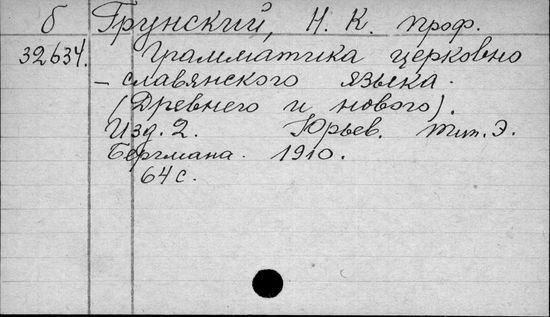 б Грунский, Н. К. проф.
32634. Грамматика церковно
- славянского языка.
(Древнего и нового).
Изд. 2. Юрьев. тип. Э.
Бергмана. 1910.
64 с.